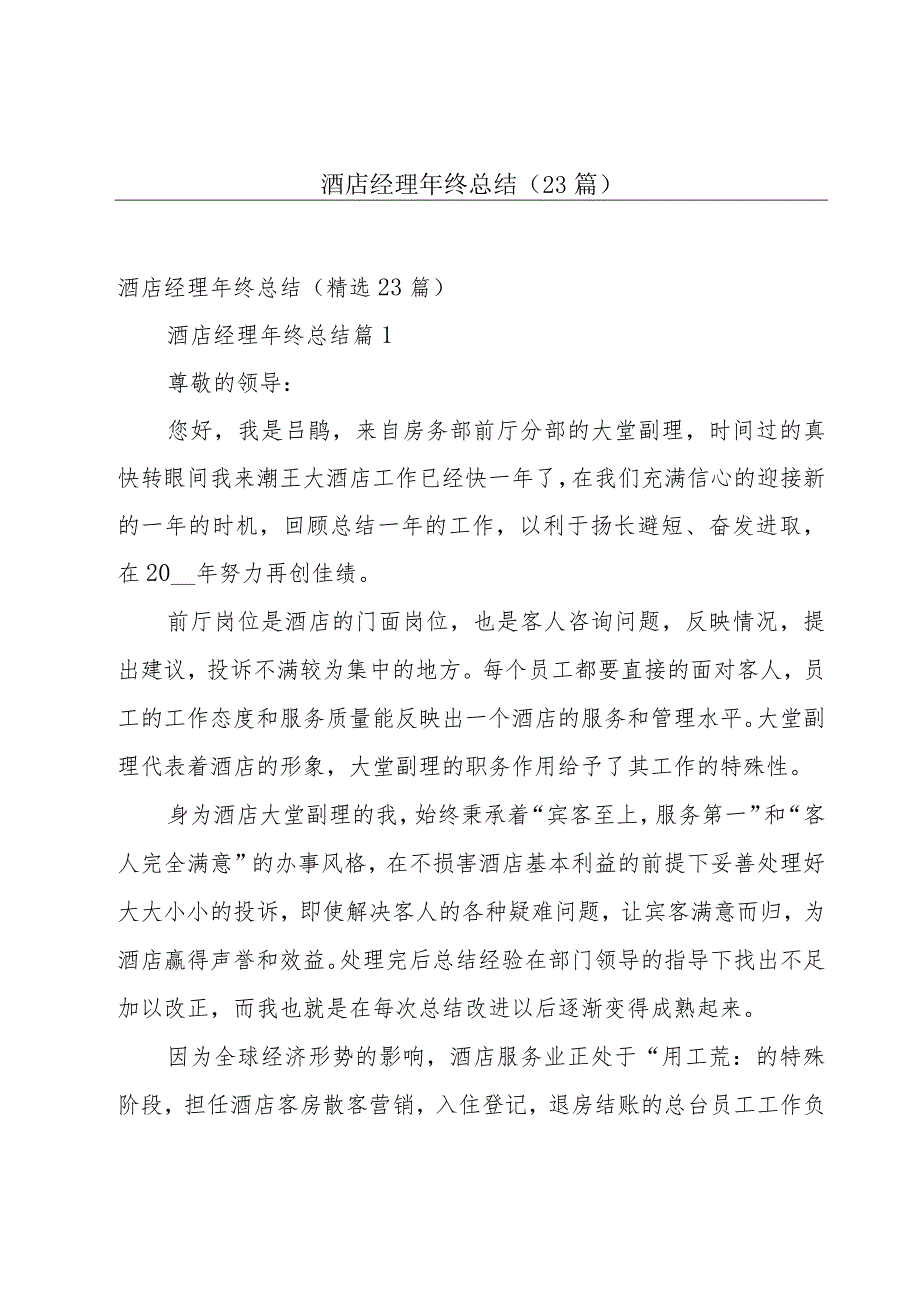 酒店经理年终总结（23篇）
酒店经理年终总结（精选23篇）
酒店经理年终总结篇1
尊敬的领导：
您好，我是吕鹃，来自房务部前厅分部的大堂副理，时间过的真
快转眼间我来潮王大酒店工作已经快一年了，在我们充满信心的迎接新
的一年的时机，回顾总结一年的工作，以利于扬长避短、奋发进取，
在20__年努力再创佳绩。
前厅岗位是酒店的门面岗位，也是客人咨询问题，反映情况，提
出建议，投诉不满较为集中的地方。每个员工都要直接的面对客人，员
工的工作态度和服务质量能反映出一个酒店的服务和管理水平。大堂副
理代表着酒店的形象，大堂副理的职务作用给予了其工作的特殊性。
身为酒店大堂副理的我，始终秉承着“宾客至上，服务第一”和“客
人完全满意”的办事风格，在不损害酒店基本利益的前提下妥善处理好
大大小小的投诉，即使解决客人的各种疑难问题，让宾客满意而归，为
酒店赢得声誉和效益。处理完后总结经验在部门领导的指导下找出不足
加以改正，而我也就是在每次总结改进以后逐渐变得成熟起来。
因为全球经济形势的影响，酒店服务业正处于“用工荒：的特殊
阶段，担任酒店客房散客营销，入住登记，退房结账的总台员工工作负